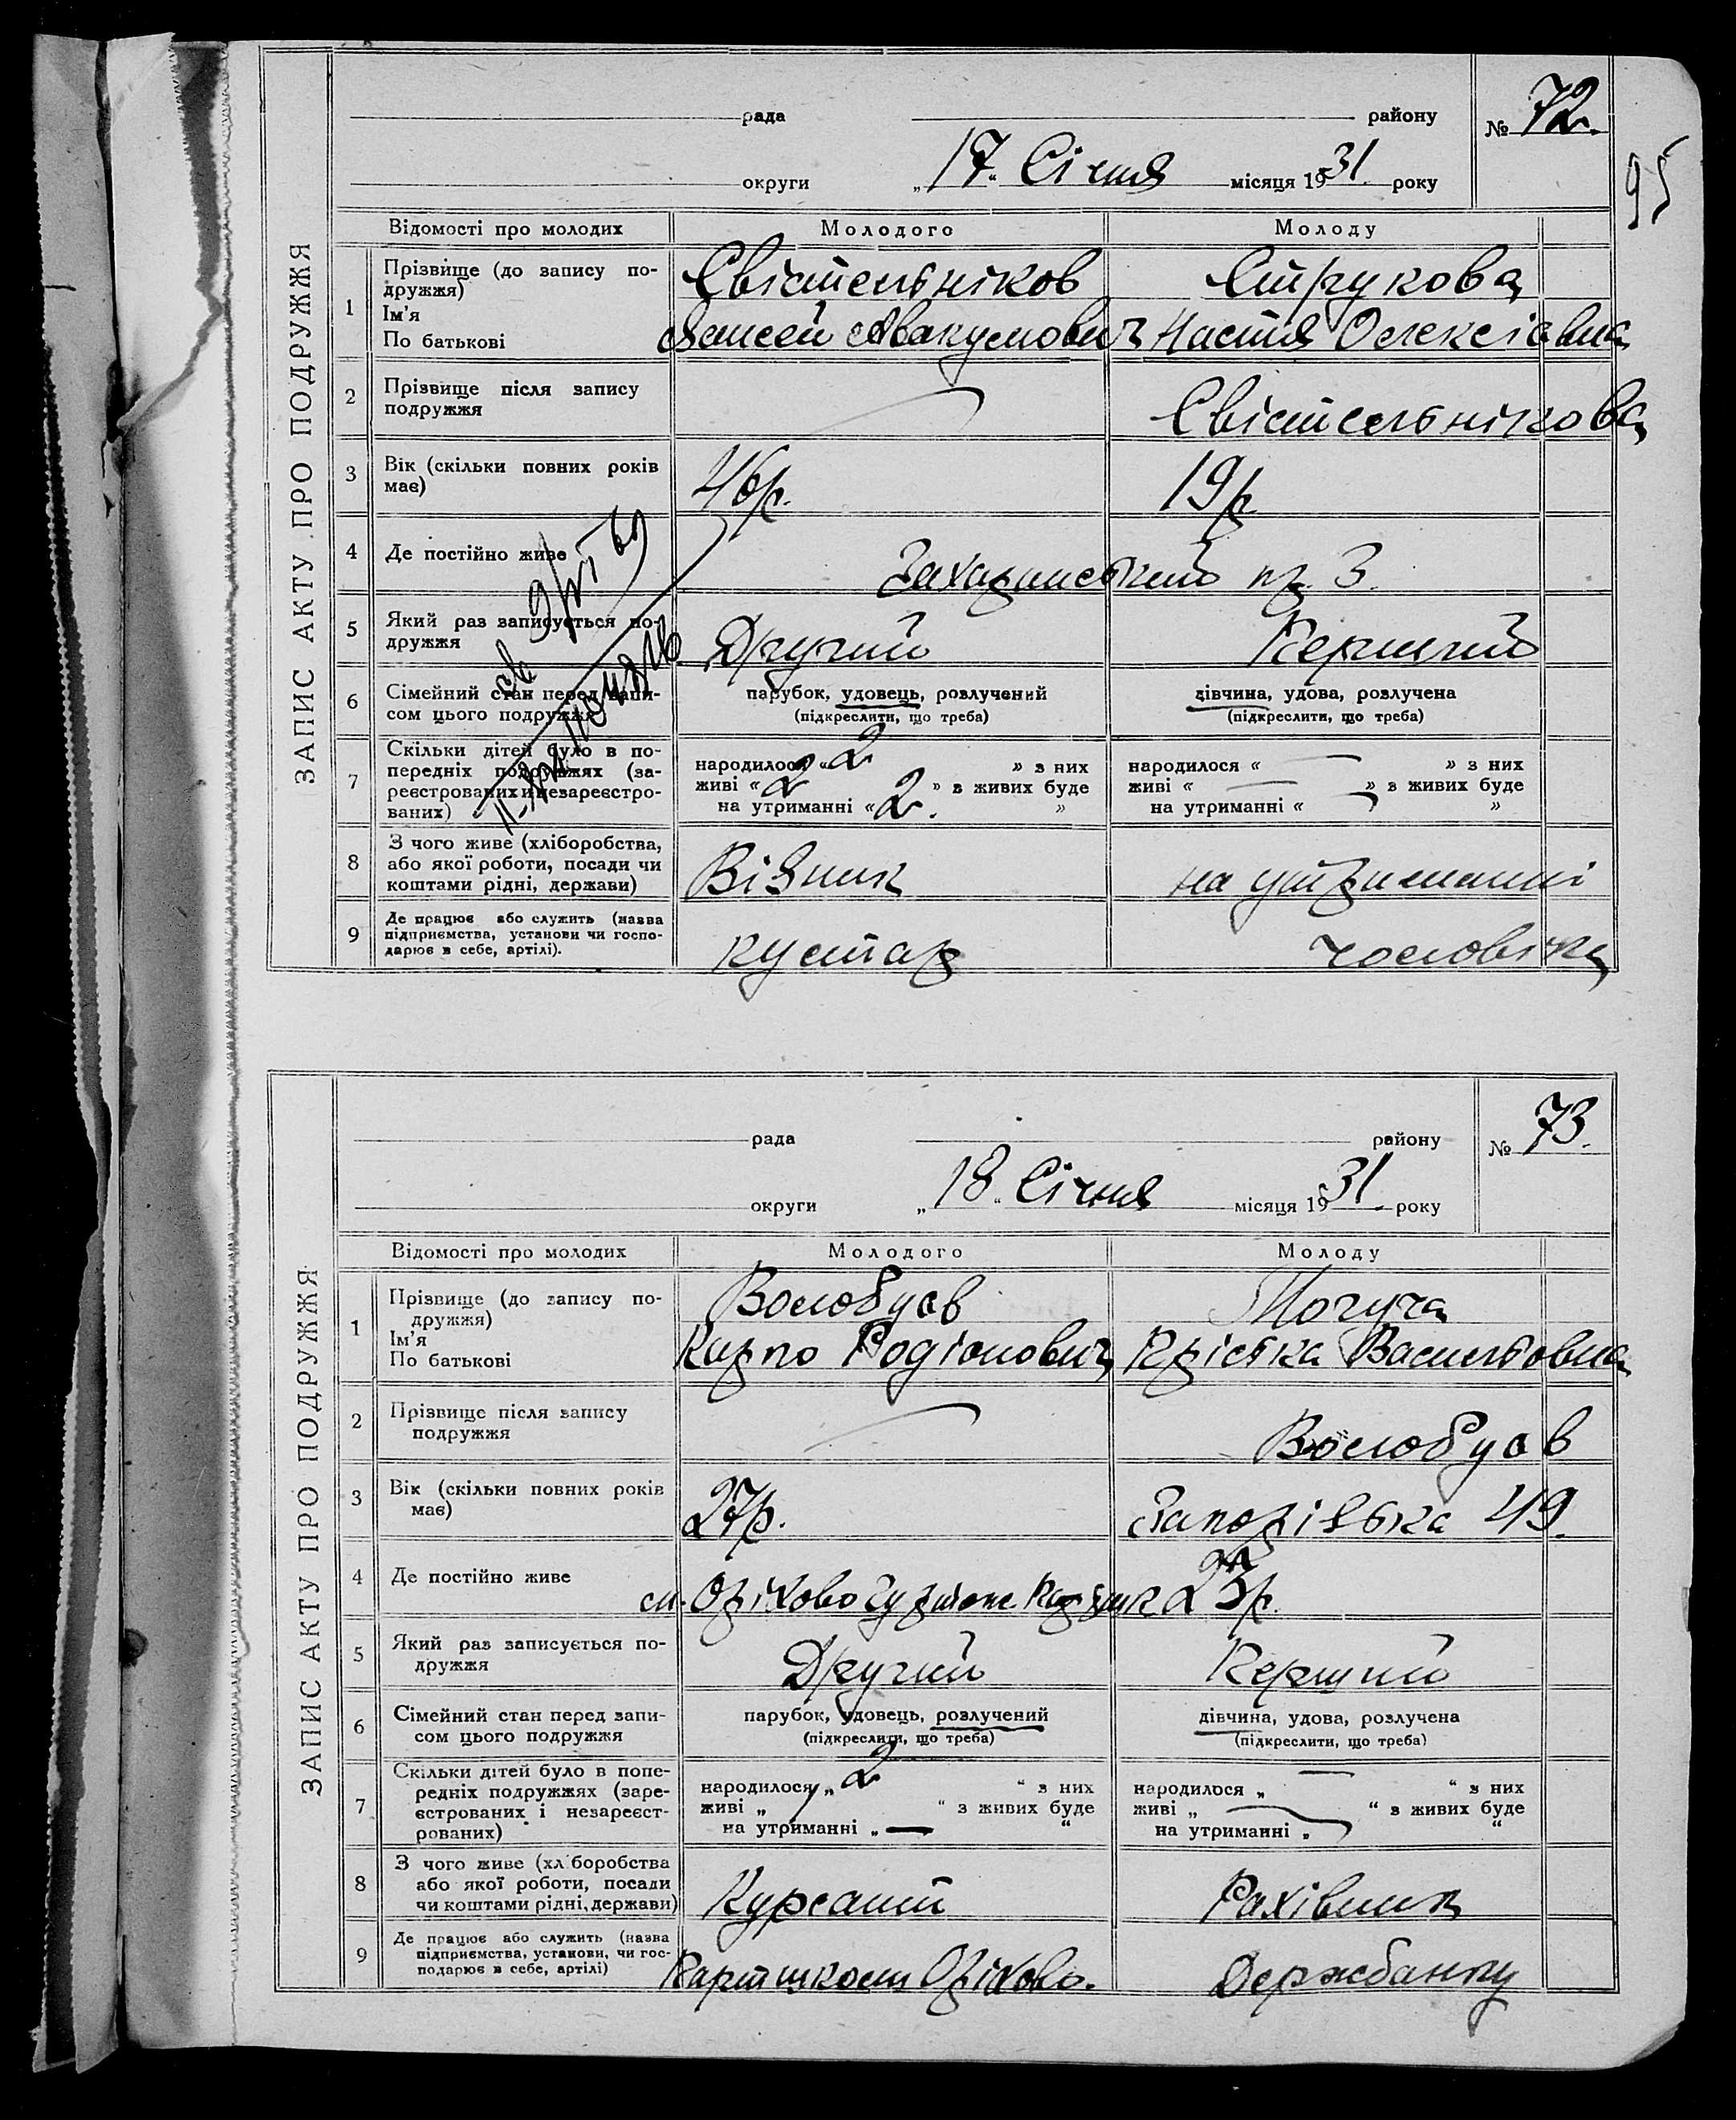 рада району № 72.
95
округи „17“ Січня місяця 1931 року
ЗАПИС АКТУ ПРО ПОДРУЖЖЯ
Відомості про молодих Молодого Молоду
1 Прізвище (до запису по-
дружжя)
Ім'я
По батькові
Свістельніков Струкова
Авакумович Настя Олексієвна
2 Прізвище після запису
подружжя
Свістельнікова
3 Вік (скільки повних років
має)
46р. 19р
4 Де постійно живе
пр. 3.
5 Який раз записується по-
дружжя
Другий Перший
6 Сімейний стан перед запи-
сом цього подружжя
парубок, удовець, розлучений дівчина, удова, розлучена
(підкреслити, що треба) (підкреслити, що треба)
7 Скільки дітей було в по-
передніх подружжях (за-
реєстрованих и незареєстро-
ваних)
народилося «2» з них народилося « » з них
живі «2» в живих буде живі « » в живих буде
на утриманні «2.» на утриманні « »
8 З чого живе (хліборобства,
або якої роботи, посади чи
коштами рідні, держави)
Візник на утриманні
9 Де працює або служить (назва
підприємства, установи чи госпо-
дарює в себе, артілі).
кустар чоловіка
рада району № 73.
округи „18“ Січня місяця 1931 року
ЗАПИС АКТУ ПРО ПОДРУЖЖЯ
Відомості про молодих Молодого Молоду
1 Прізвище (до запису по-
дружжя)
Ім'я
По батькові
Волобуєв Могуча
Карпо Родіонович Васильовна
2 Прізвище після запису
подружжя
Волобуєв
3 Вік (скільки повних років
має)
27р. Запорізька 49.
4 Де постійно живе
ст. Оріхово 23р.
5 Який раз записується по-
дружжя
Другий Перший
6 Сімейний стан перед запи-
сом цього подружжя
парубок, удовець, розлучений дівчина, удова, розлучена
(підкреслити, що треба) (підкреслити, що треба)
7 Скільки дітей було в попе-
редніх подружжях (заре-
єстрованих і незареєст-
рованих)
народилося „2“ з них народилося „ “ з них
живі „ “ з живих буде живі „ “ в живих буде
на утриманні „—“ на утриманні „ “
8 З чого живе (хліборобства
або якої роботи, посади
чи коштами рідні, держави)
Курсант Рахівник
9 Де працює або служить (назва
підприємства, установи, чи гос-
подарює в себе, артілі)
Партшколи Оріхово. Держбанку